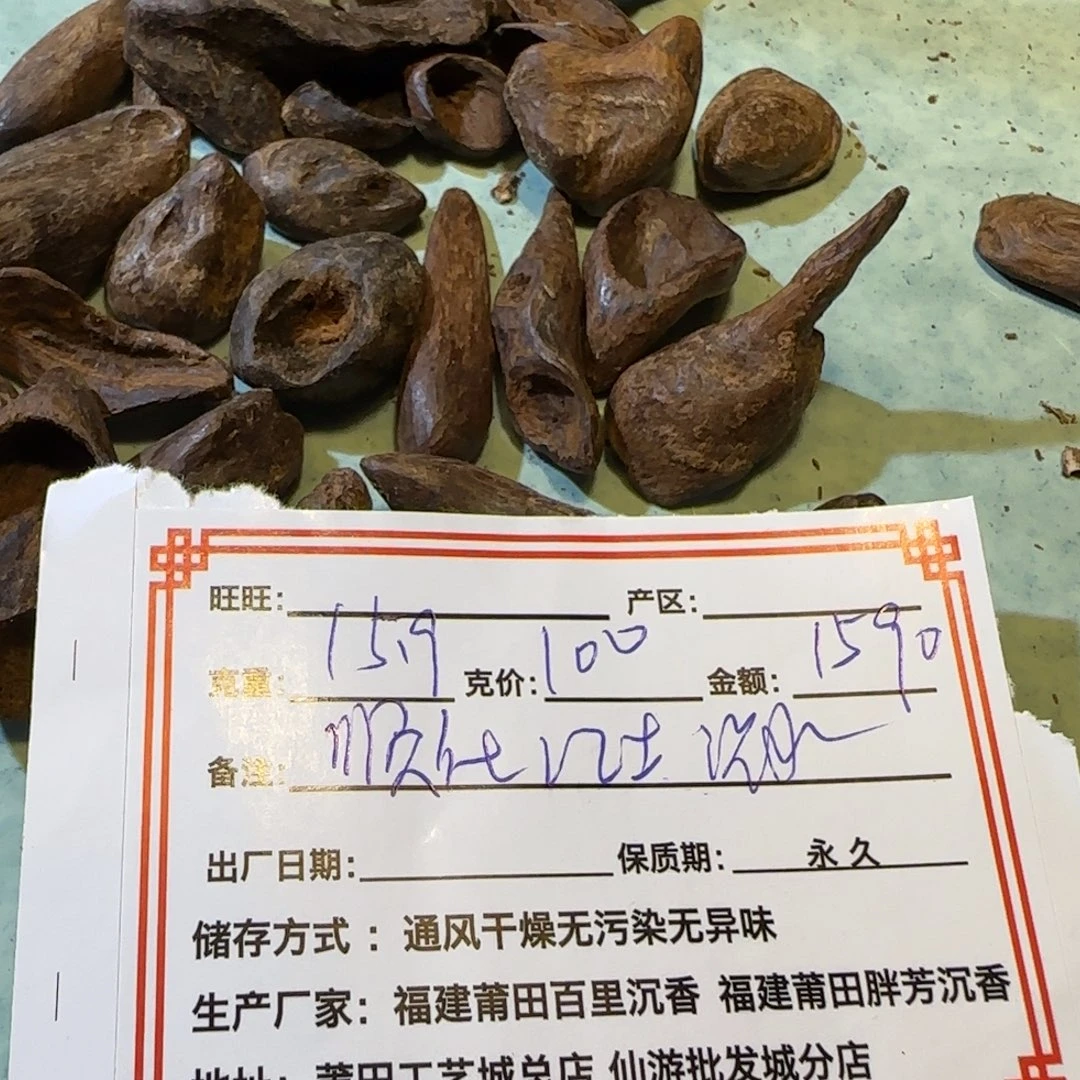 旺旺： 产区：
克重：15.9 克价：100 金额：1590
备注：顺化 红土 沉水
出厂日期： 保质期： 永久
储存方式 ：通风干燥无污染无异味
生产厂家：福建莆田百里沉香 福建莆田胖芳沉香
地址：莆田工艺城总店 仙游批发城分店